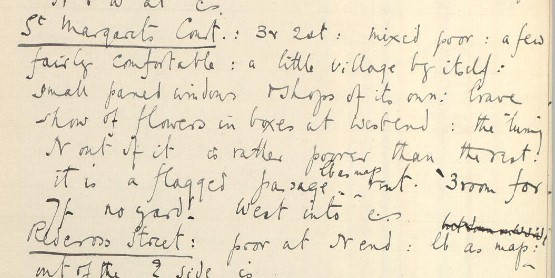 St Margarets Court. : 3r 2st : mixed poor : a few
fairly comfortable : a little village by itself :
small paned windows & shops of its own : brave
show of flowers in boxes at West end : the turning
N out of it is rather poorer than the rest :
it is a flagged passage lb as map rent. 3 room for
7/- no yard! West into
Redcross Street : poor at N end : lb as map :
out of the side is